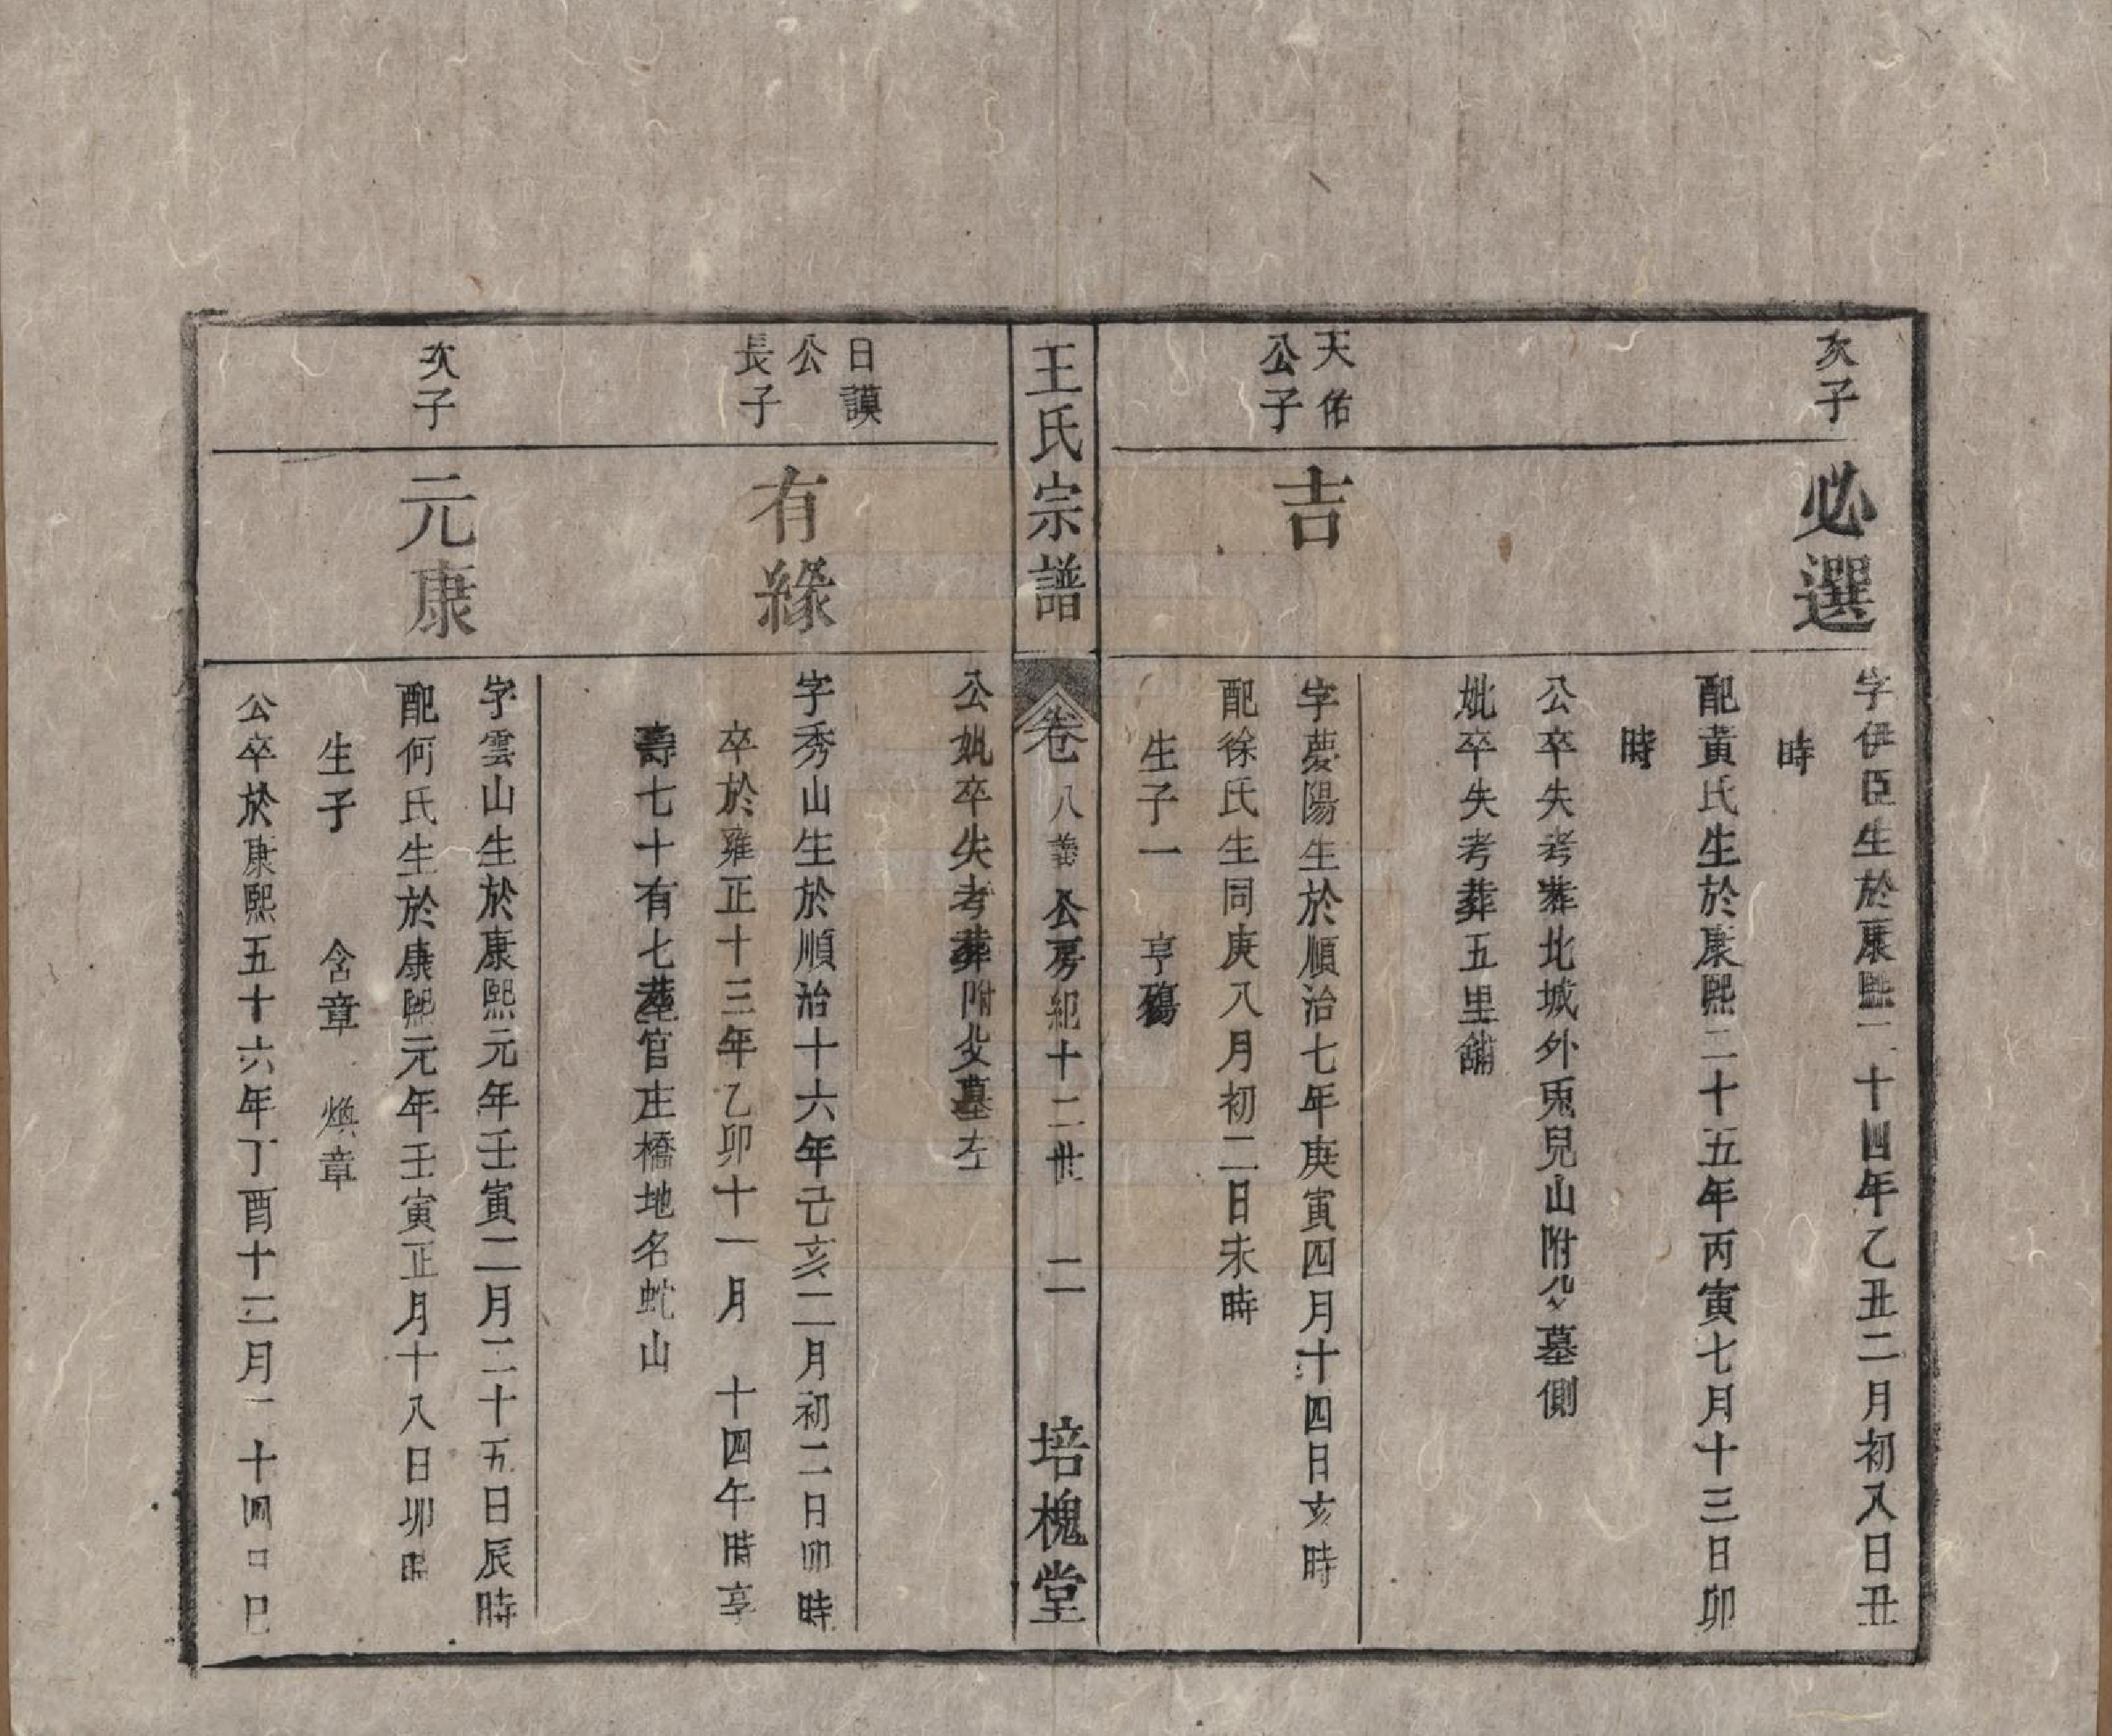 次子
必選
字伊臣生於康熙二十四年乙丑二月初八日丑
時
配黃氏生於康熙二十五年丙寅七月十三日卯
時
公卒失考葬北城外兎兒山附公墓側
妣卒失考葬五里舖
天佑
公子
吉
字夢陽生於順治七年庚寅四月十四日亥時
配徐氏生同庚八月初二日未時
生子一 亨殤
王氏宗譜
卷八 公房紀十二世 二
培槐堂
公妣卒失考葬附父墓左
日謨
公
長子
有緣
字秀山生於順治十六年己亥二月初二日卯時
卒於雍正十三年乙卯十一月 十四午時享
壽七十有七葬官庄橋地名蛇山
次子
元康
字雲山生於康熙元年壬寅二月二十五日辰時
配何氏生於康熙元年壬寅正月十八日卯時
生子 含章 煥章
公卒於康熙五十六年丁酉十二月二十四日巳